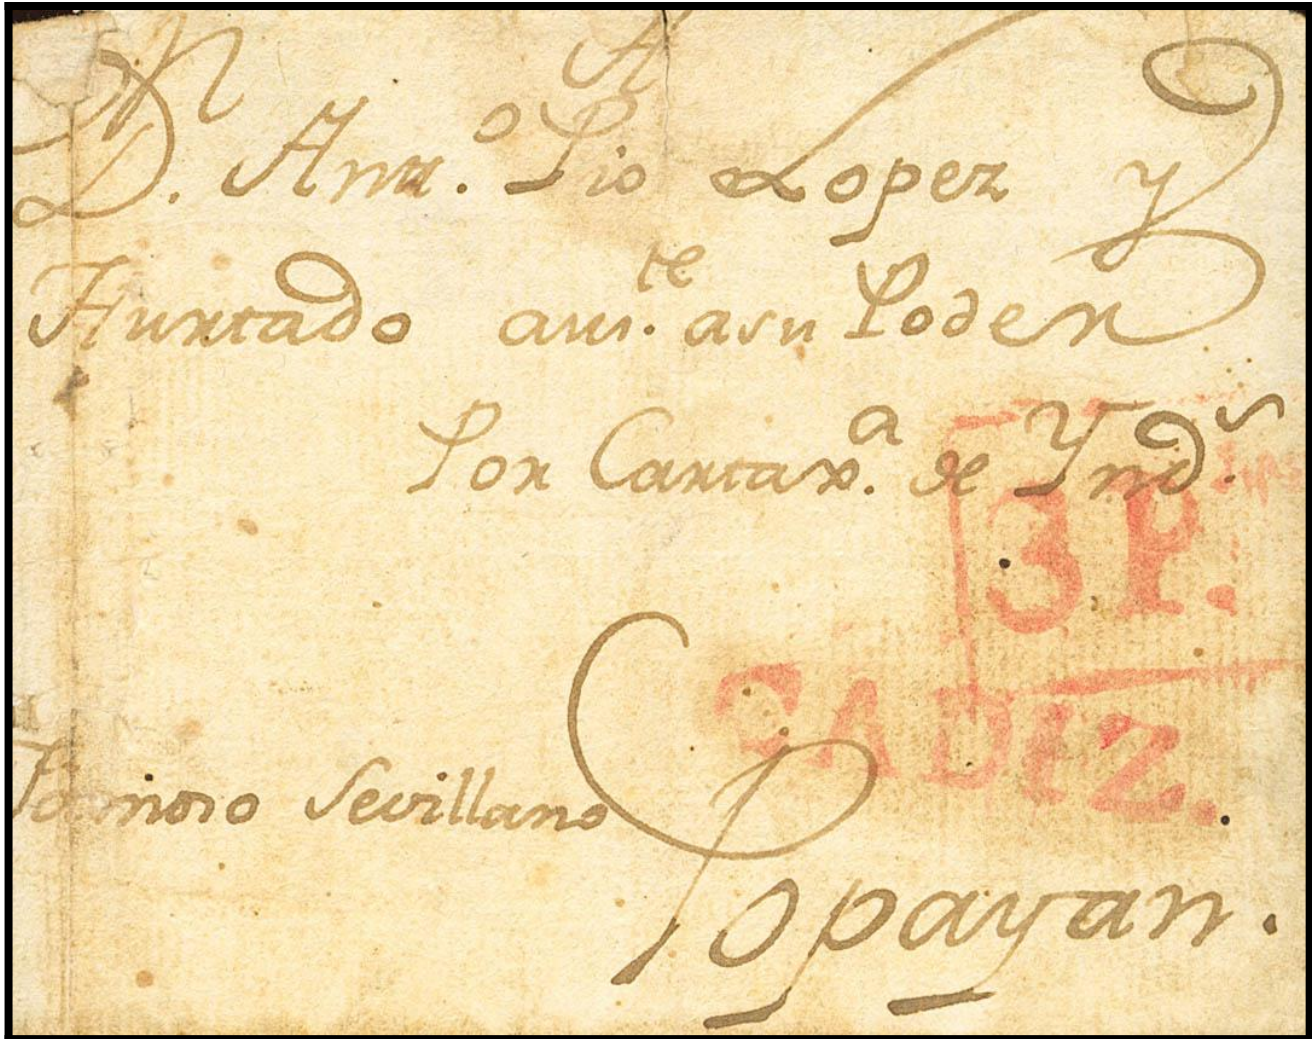 A
Dn. Anto. Pio Lopez y
Hurtado aute. asu Poder
Por Cartaxa. de Ynds.
3P.
CADIZ.
Sevillano
Popayan.